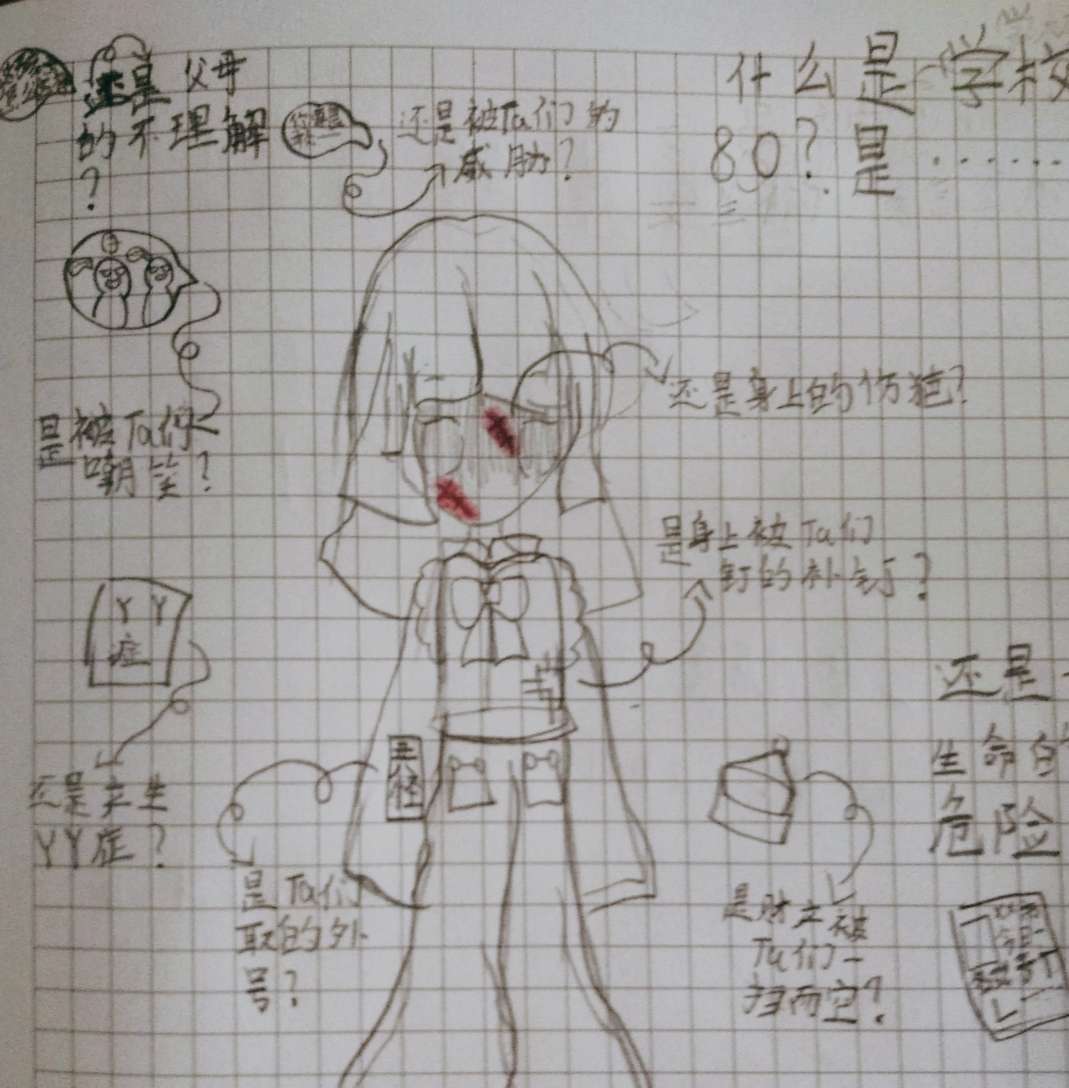 什么是学校
80？是……
还是父母
的不理解
？
还是被Ta们的
威胁？
是被Ta们
嘲笑？
还是身上的伤疤？
是身上被Ta们
钉的补钉？
YY
症
还是产生
YY症？
是Ta们
取的外
号？
还是
生命的
危险
是财产被
Ta们一
扫而空？